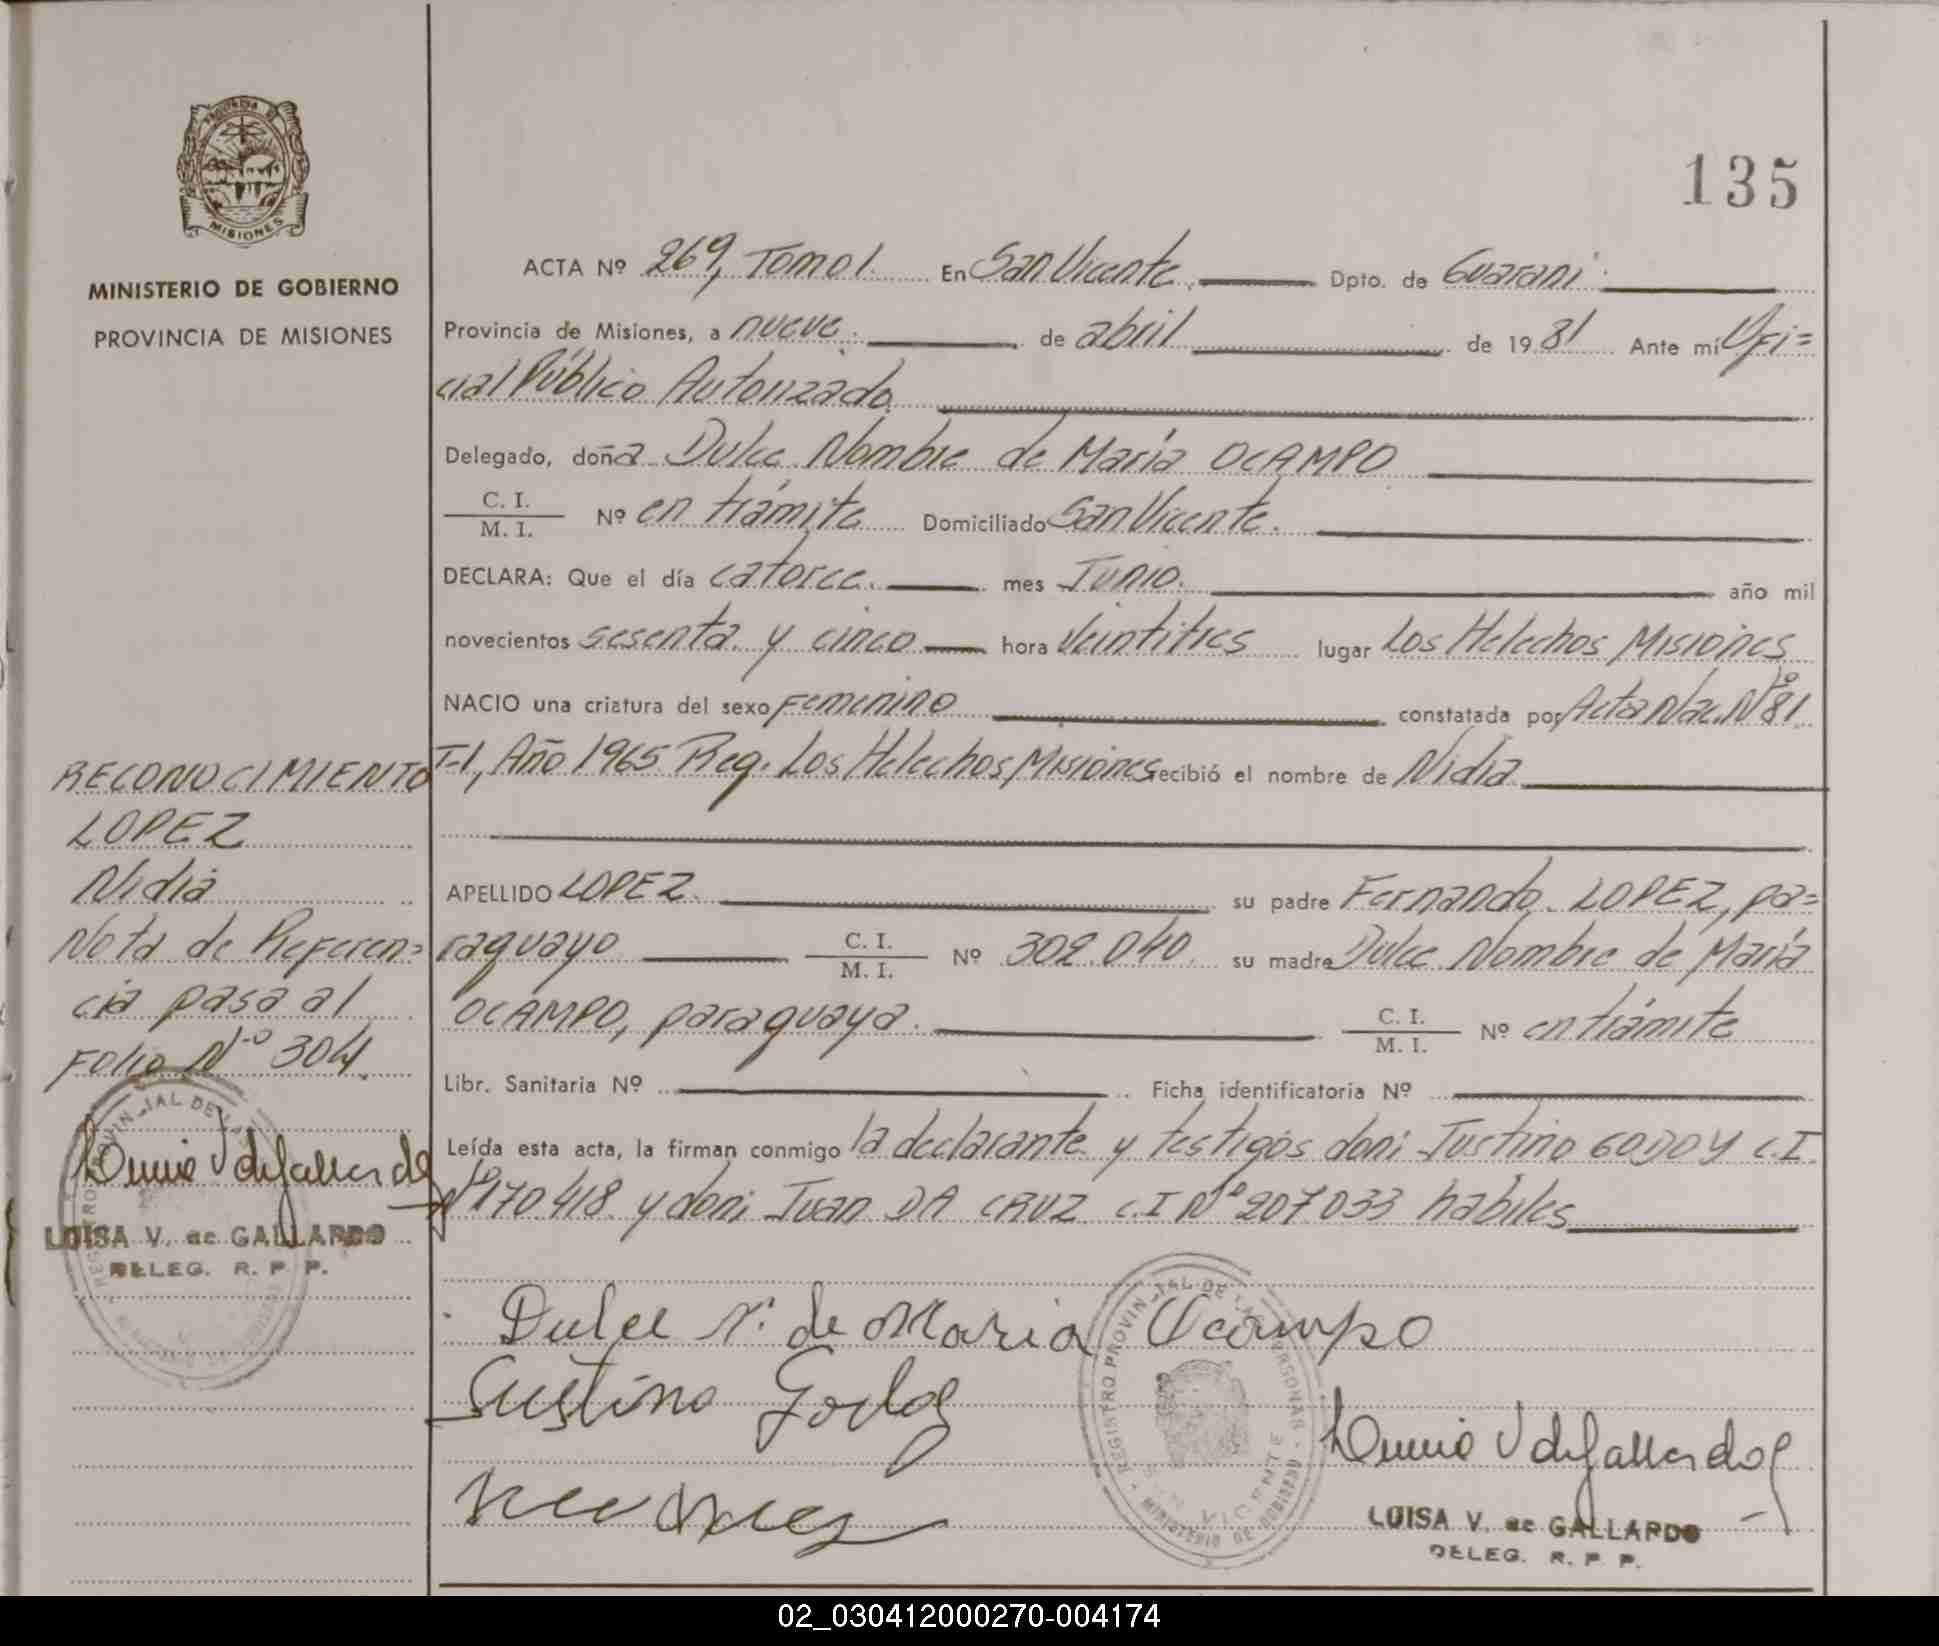 135
MISIONES
MINISTERIO DE GOBIERNO
PROVINCIA DE MISIONES
ACTA Nº 269, Tomo 1. En San Vicente. Dpto. de Guaraní
Provincia de Misiones, a nueve. de abril de 1981 Ante mí Ofi=
cial Público Autorizado
Delegado, doña Dulce Nombre de María OCAMPO
C. I.
M. I. Nº en trámite Domiciliado San Vicente.
DECLARA: Que el día catorce. mes Junio. año mil
novecientos sesenta y cinco hora veintitres lugar Los Helechos Misiones
NACIO una criatura del sexo Femenino constatada por Acta Nac. Nº 81
T-1, Año 1965 Reg. Los Helechos, Misiones recibió el nombre de Nidia
APELLIDO LOPEZ. su padre Fernando LOPEZ, pa=
raguayo C. I.
M. I. Nº 302.040. su madre Dulce Nombre de María
OCAMPO, paraguaya. C. I.
M. I. Nº en trámite
Libr. Sanitaria Nº Ficha identificatoria Nº
Leída esta acta, la firman conmigo la declarante y testigos don: Justino GODOY C.I.
Nº 170.418 y don: Juan DA CRUZ C.I Nº 207.033 hábiles
RECONOCIMIENTO
LOPEZ
Nidia
Nota de Referen=
cia pasa al
Folio Nº 304.
LUISA V. de GALLARDO
DELEG. R. P. P.
Dulce N. de Maria Ocampo
Justino Godoy
REGISTRO PROVINCIAL DE LAS PERSONAS
LUISA V. de GALLARDO
DELEG. R. P. P.
02_030412000270-004174